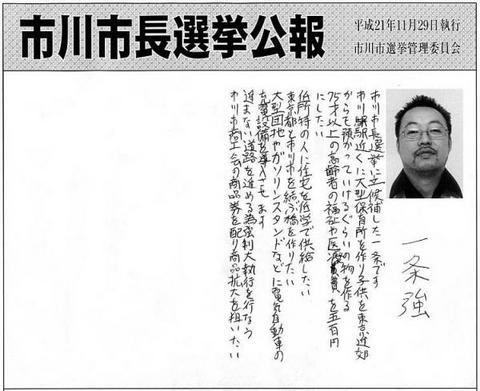 市川市長選挙公報
平成21年11月29日執行
市川市選挙管理委員会
一条強
市川市長選挙に立候補した一条です
市川駅近くに大型保育所を作り子供を東京近郊
からも預かっていけるぐらいの物を作る
75才以上の高齢者の福祉や医療費を五百円
にしたい
低所得の人に住宅を低学で供給したい
東京都と市川市を結ぶ橋を作りたい
大型団地やガソリンスタンドなどに電気自動車の
充電設備を導入させます
進まない道路を進める為強制大執行を行なう
市川市商工会の商品券を配り商品拡大を狙いたい